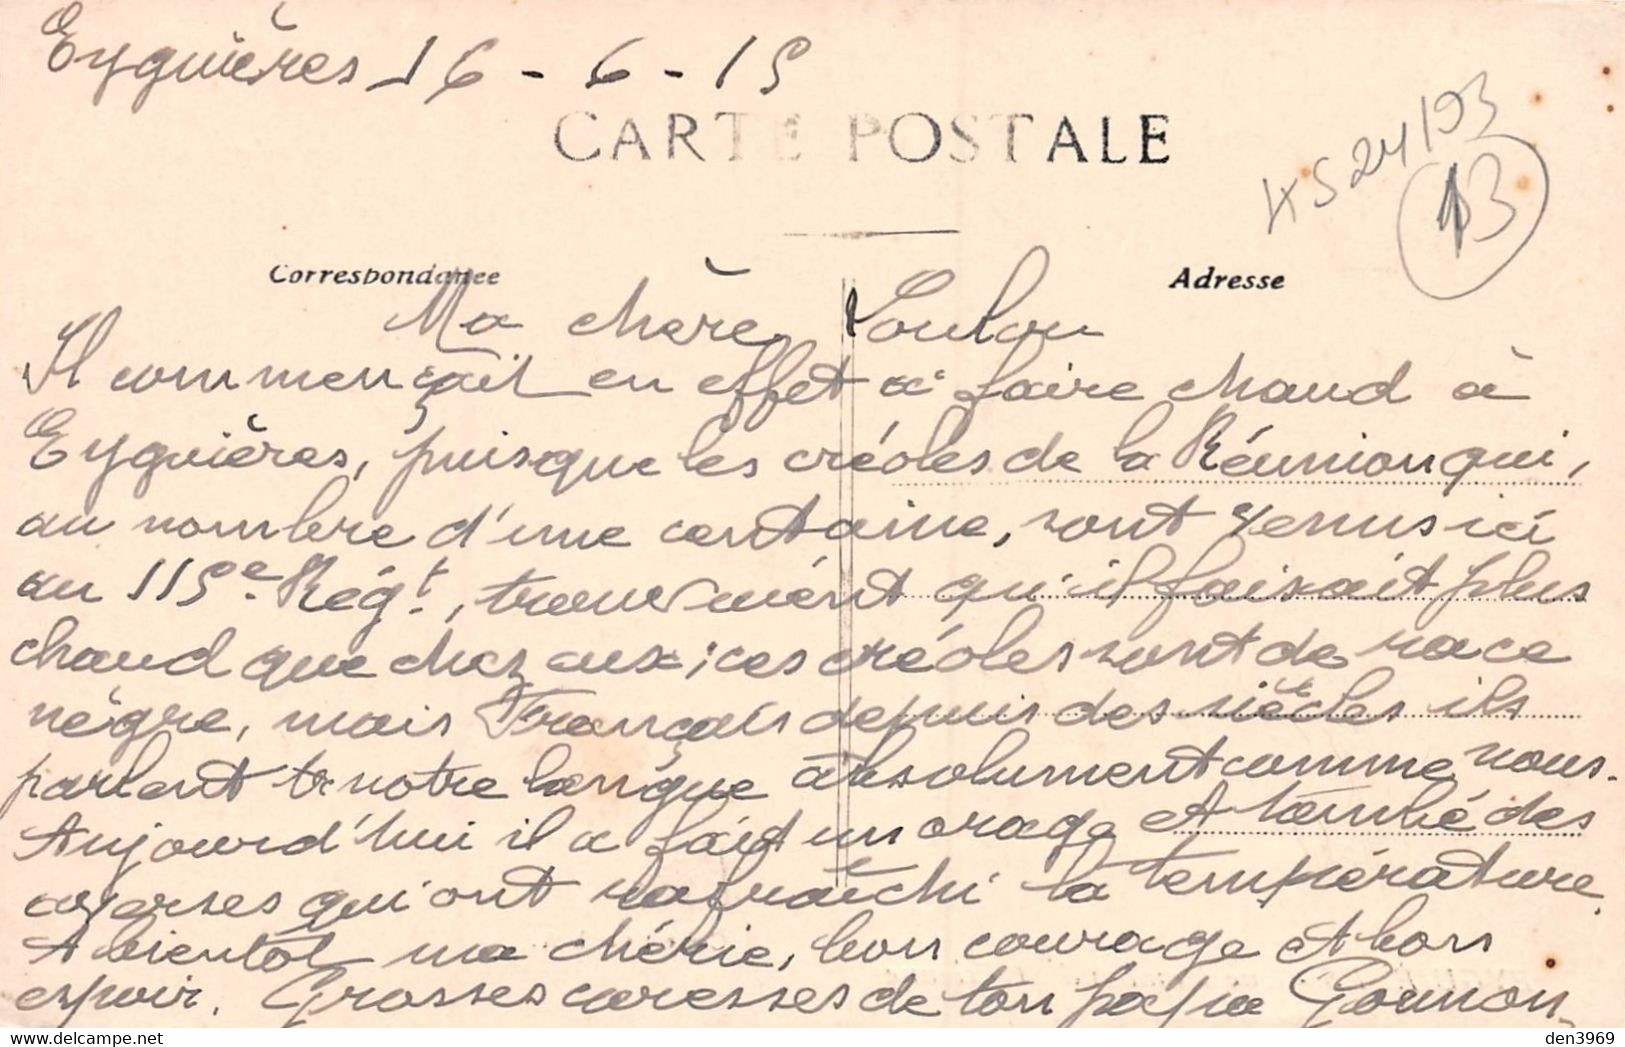 Eyguières 16-6-15
CARTE POSTALE
XS 24193
13
Correspondance
Adresse
Ma chère Loulou
Il commençait en effet à faire chaud à
Eyguières, puisque les créoles de la Réunion qui,
au nombre d'une centaine, sont venus ici
au 115e Régt, trouvaient qu'il faisait plus
chaud que chez eux ; ces créoles sont de race
nègre, mais Français depuis des siècles ils
parlent notre langue absolument comme nous.
Aujourd'hui il a fait un orage et tombé des
averses qui ont rafraîchi la température.
A bientôt ma chérie, bon courage et bon
espoir. Grosses caresses de ton papa
den3969